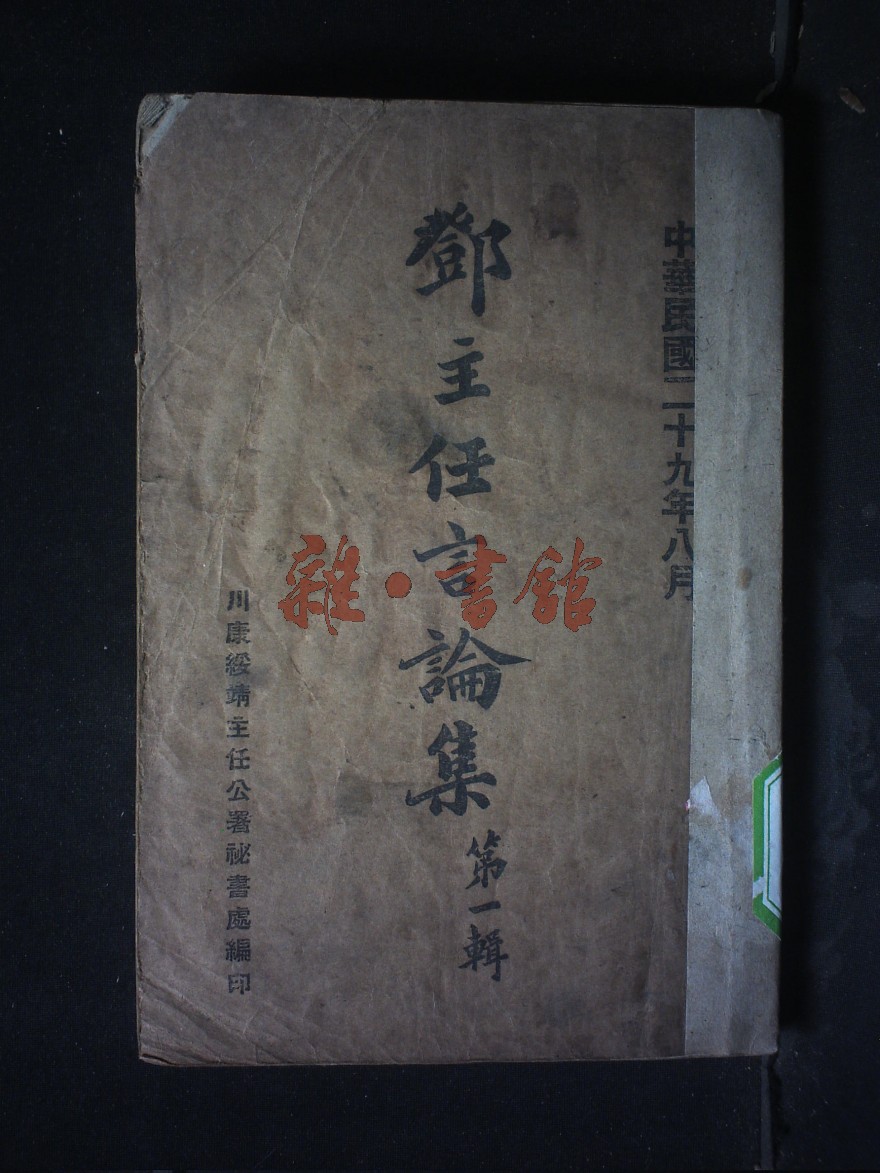 中華民國二十九年八月
鄧主任言論集
第一輯
川康綏靖主任公署祕書處編印
雜·書館